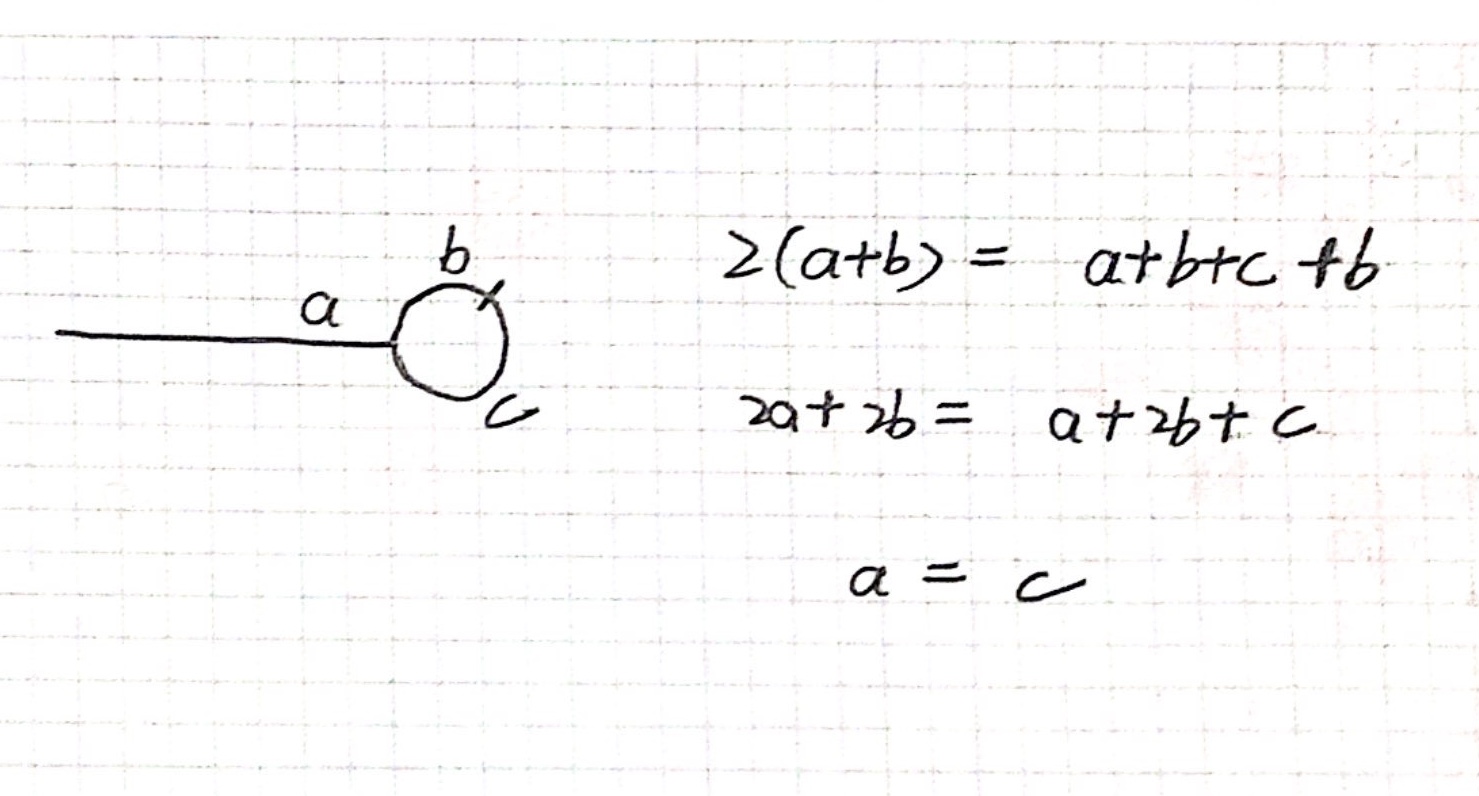 b
a
c
2(a+b) = a+b+c+b
2a+2b = a+2b+c
a = c